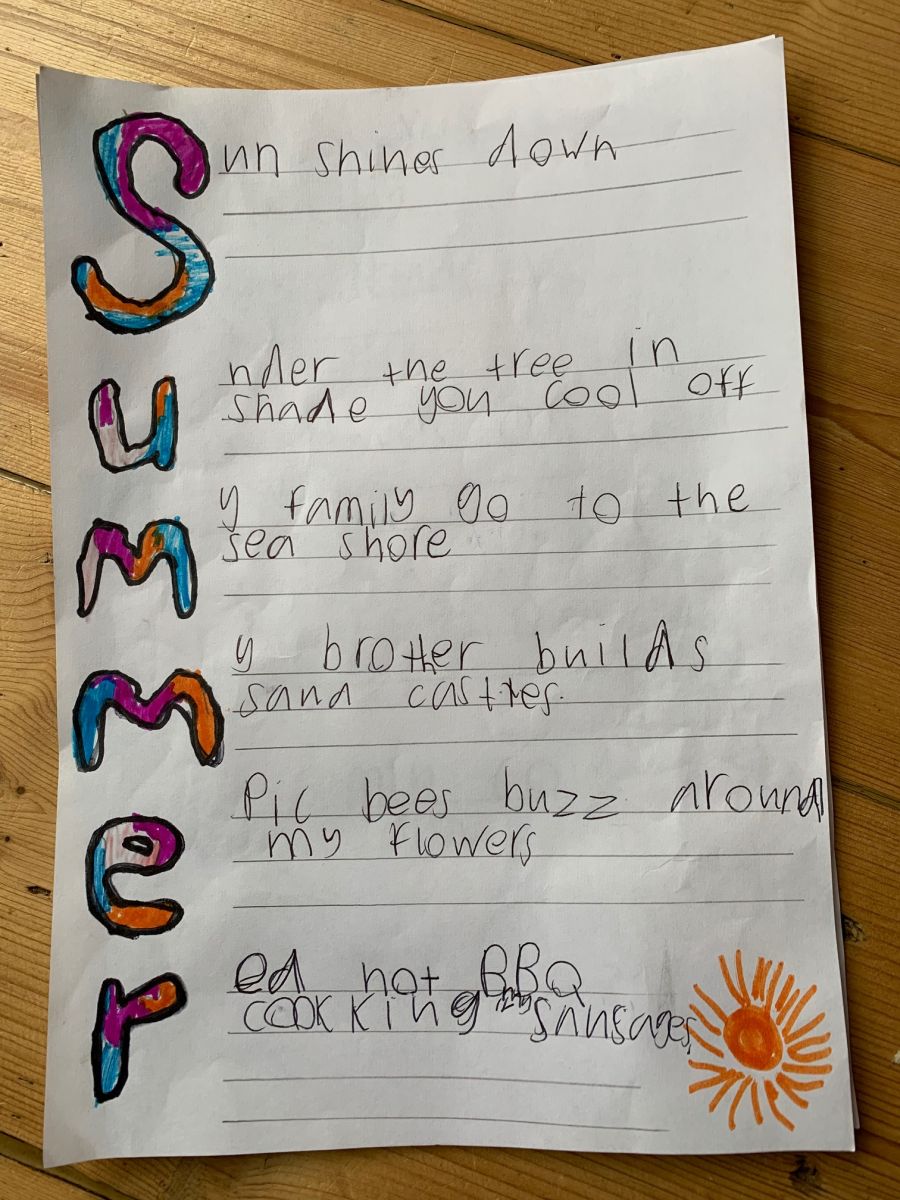 Sun shines down
under the tree in
shade you cool off
My family go to the
sea shore
My brother builds
sand castles.
ePic bees buzz around
my flowers
red hot BBQ
cookking my sausages